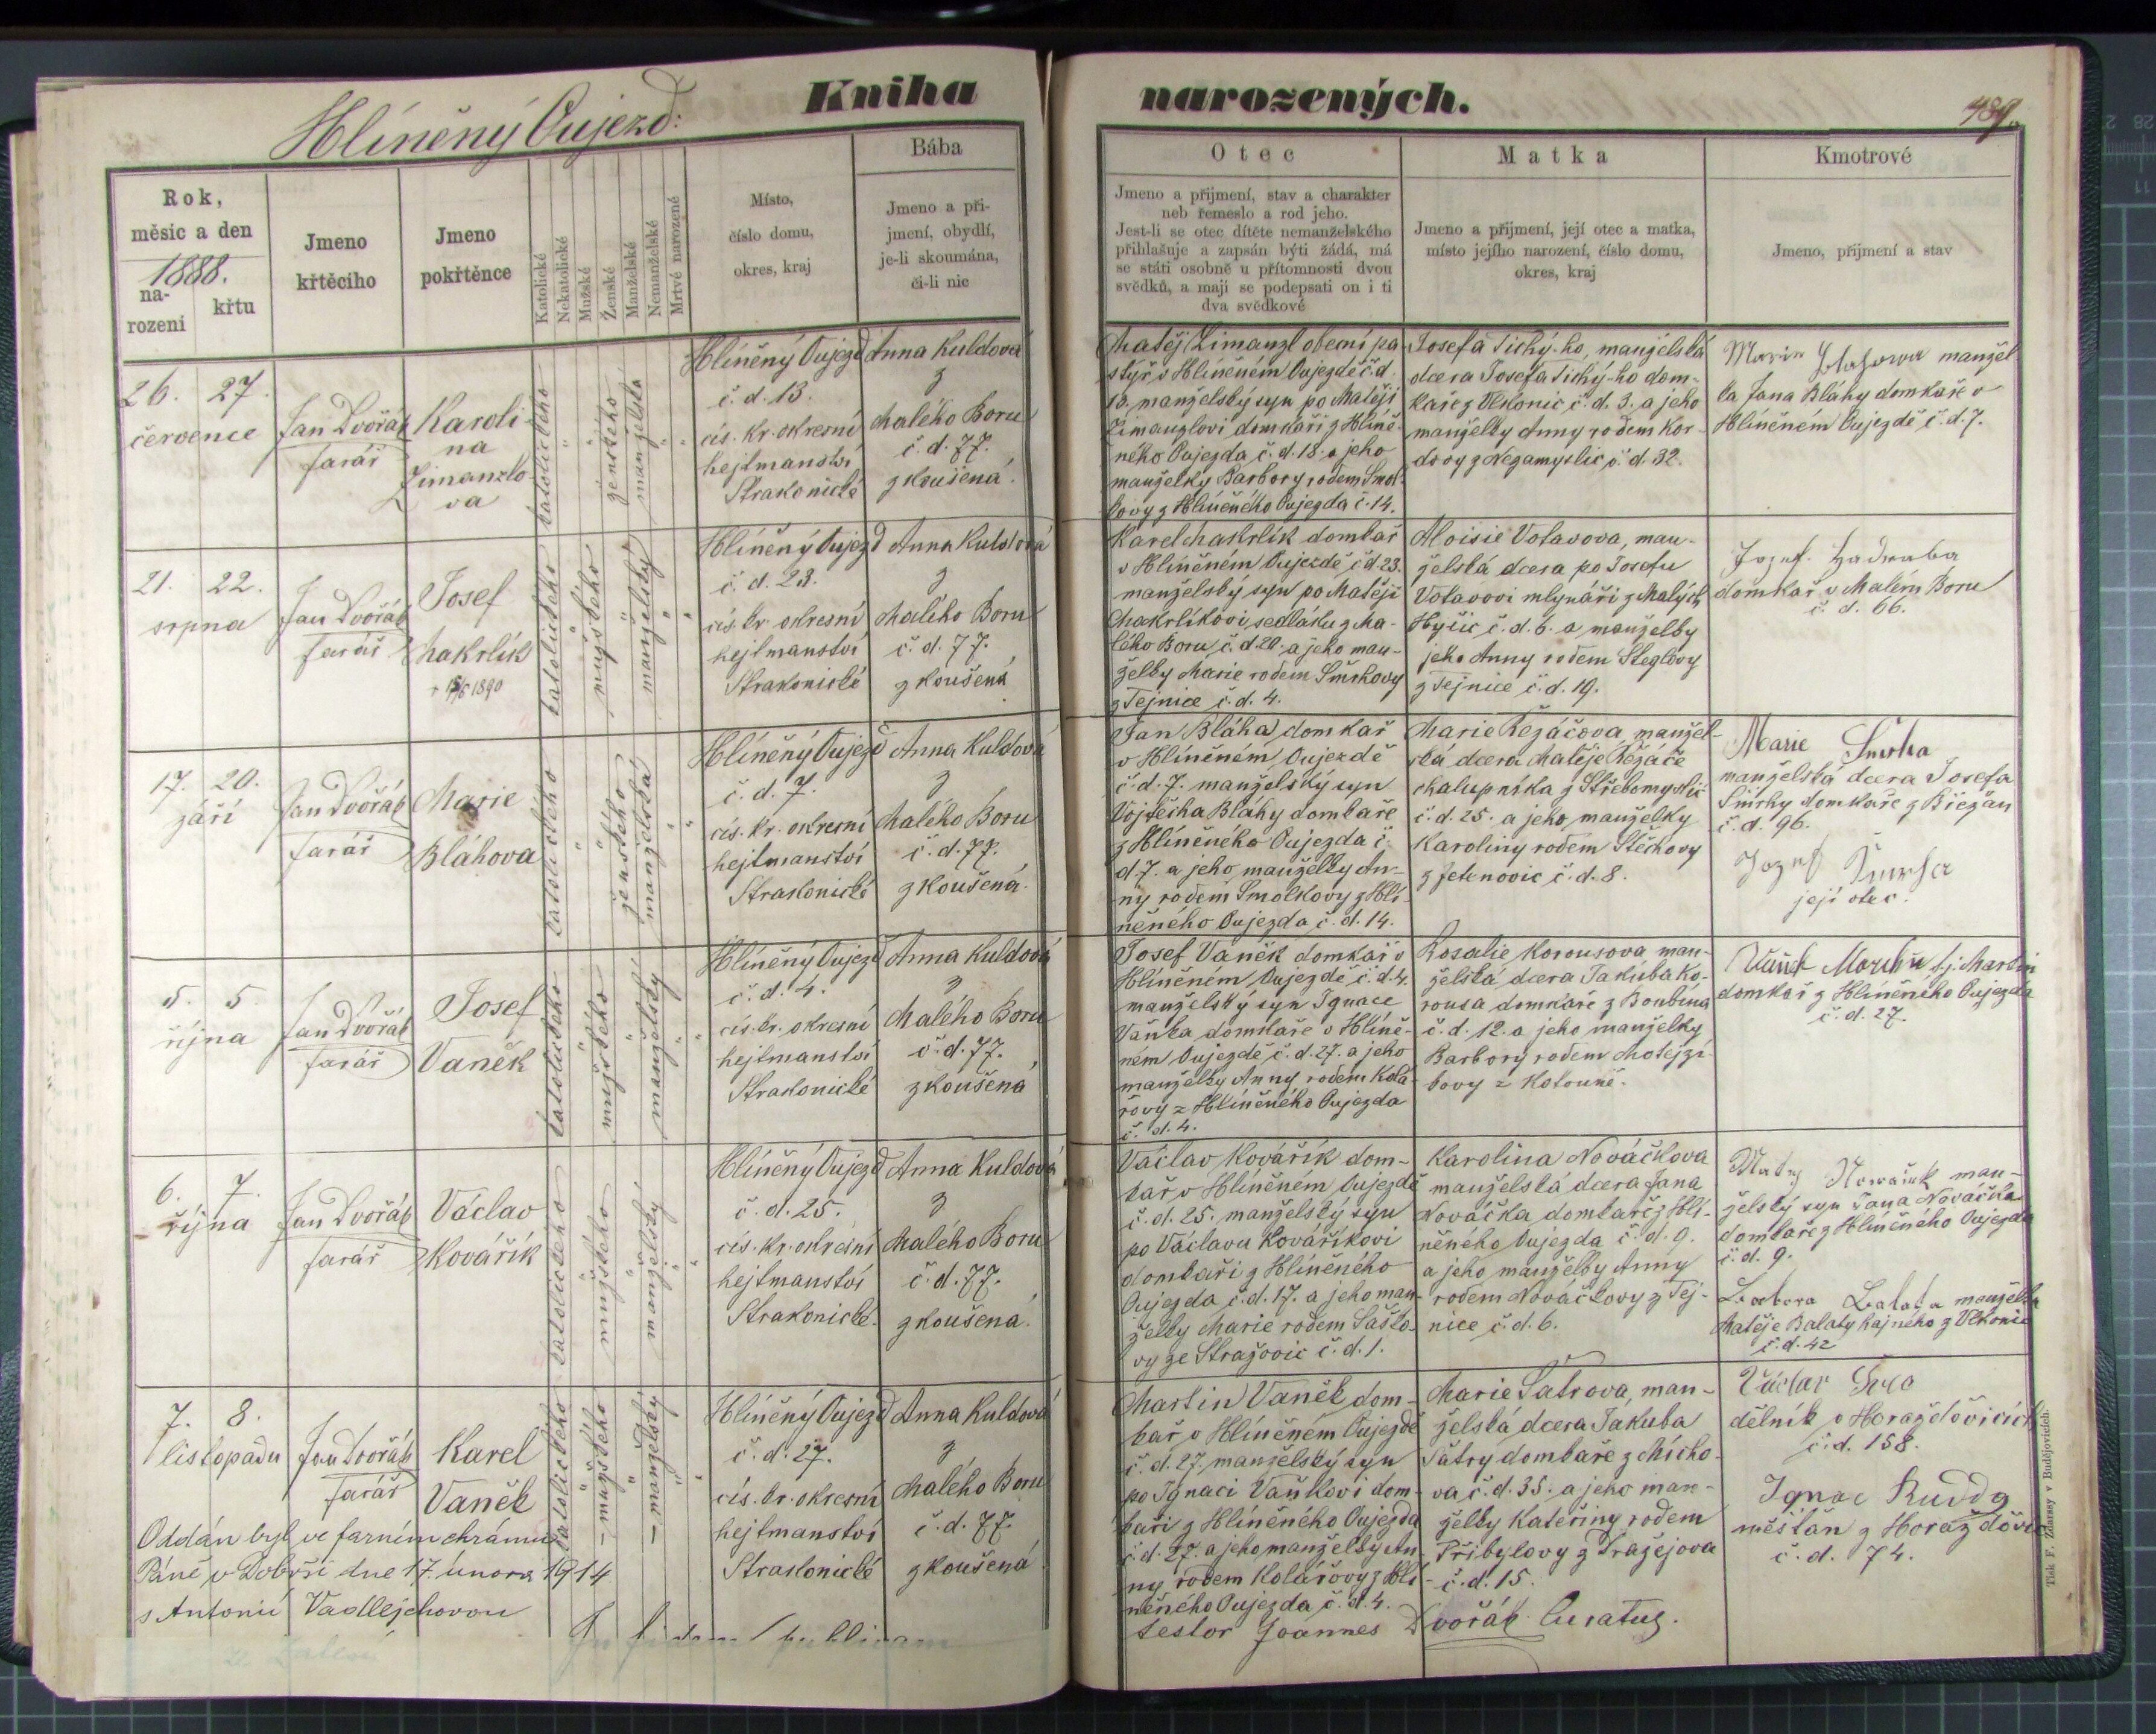 Hlíněný Oujezd:
Kniha narozených.
489.
Rok,
měsíc a den
1888.
na-
rození
křtu
Jmeno
křtěcího
Jmeno
pokřtěnce
Katolické
Nekatolické
Mužské
Ženské
Manželské
Nemanželské
Mrtvě narozené
Místo,
číslo domu,
okres, kraj
Bába
Jmeno a při-
jmení, obydlí,
je-li skoumána,
či-li nic
Otec
Jmeno a přijmení, stav a charakter
neb řemeslo a rod jeho.
Jest-li se otec dítěte nemanželského
přihlašuje a zapsán býti žádá, má
se státi osobně u přítomnosti dvou
svědků, a mají se podepsati on i ti
dva svědkové
Matka
Jmeno a přijmení, její otec a matka,
místo jejího narození, číslo domu,
okres, kraj
Kmotrové
Jmeno, přijmení a stav
26. 27.
července
Jan Dvořák
farář
Karoli-
na
Zimanzlo-
va
katolického
ženského
manželská
Hlíněný Oujezd
č. d. 13.
cís. kr. okresní
hejtmanství
Strakonické
Anna Kuldová
z
Malého Boru
č. d. 77.
zkoušená.
Matěj Zimanzl obecní pa-
stýř v Hlíněném Oujezdě č. d.
13. manželský syn po Matěji
Zimanzlovi domkáři z Hlíně-
ného Oujezda č. d. 18. a jeho
manželky Barbory rodem Smol-
kovy z Hlíněného Oujezda č. 14.
Josefa Tichý-ho, manželská
dcera Josefa Tichý-ho dom-
káře z Vlkonic č. d. 3. a jeho
manželky Anny rodem Kor-
dovy z Nezamyslic č. d. 32.
Marie Blahowa manžel-
ka Jana Bláhy domkáře v
Hlíněném Oujezdě č. d. 7.
21. 22.
srpna
Jan Dvořák
farář
Josef
Makrlík
1890
katolického
mužského
manželský
Hlíněný Oujezd
č. d. 23.
cís. kr. okresní
hejtmanství
Strakonické
Anna Kuldová
z
Malého Boru
č. d. 77.
zkoušená
Karel Makrlík domkář
v Hlíněném Oujezdě č. d. 23.
manželský syn po Matěji
Makrlíkovi sedláku z Ma-
lého Boru č. d. 20. a jeho man-
želky Marie rodem Smrkovy
z Tejnice č. d. 4.
Aloisie Votavova, man-
želská dcera po Josefu
Votavovi mlynáři z Malých
Hyčic č. d. 6. a manželky
jeho Anny rodem Steglovy
z Tejnice č. d. 19.
Jozef Hadraba
domkář v Malém Boru
č. d. 66.
17. 20.
září
Jan Dvořák
farář
Marie
Bláhova
katolického
ženského
manželská
Hlíněný Oujezd
č. d. 7.
cís. kr. okresní
hejtmanství
Strakonické
Anna Kuldová
z
Malého Boru
č. d. 77.
zkoušená.
Jan Bláha domkář
v Hlíněném Oujezdě
č. d. 7. manželský syn
Vojtěcha Bláhy domkáře
z Hlíněného Oujezda č.
d. 7. a jeho manželky An-
ny rodem Smolkovy z Hlí-
něného Oujezda č. d. 14.
Marie Řezáčova, manžel-
ská dcera Matěje Řezáče
chalupníka z Střebomyslic
č. d. 25. a jeho manželky
Karoliny rodem Stěchovy
z Jetenovic č. d. 8.
Marie Smrha
manželská dcera Josefa
Smrhy domkáře z Břežan
č. d. 96.
Jozef Smrha
její otec.
5. 5.
října
Jan Dvořák
farář
Josef
Vaněk
katolického
mužského
manželský
Hlíněný Oujezd
č. d. 4.
cís. kr. okresní
hejtmanství
Strakonické
Anna Kuldová
z
Malého Boru
č. d. 77.
zkoušená
Josef Vaněk domkář v
Hlíněném Oujezdě č. d. 4.
manželský syn Ignace
Vaňka domkáře v Hlíně-
ném Oujezdě č. d. 27. a jeho
manželky Anny rodem Kolá-
řovy z Hlíněného Oujezda
č. d. 4.
Rosalie Korousova, man-
želská dcera Jakuba Ko-
rousa domkáře z Boubína
č. d. 12. a jeho manželky
Barbory rodem Motejzí-
kovy z Kotouně.
t. j. Martin
domkář z Hlíněného Oujezda
č. d. 27.
6. 7.
října
Jan Dvořák
farář
Václav
Kovářík
katolického
mužského
manželský
Hlíněný Oujezd
č. d. 25.
cís. kr. okresní
hejtmanství
Strakonické.
Anna Kuldová
z
Malého Boru
č. d. 77.
zkoušená.
Václav Kovářík dom-
kář v Hlíněném Oujezdě
č. d. 25. manželský syn
po Václavu Kováříkovi
domkáři z Hlíněného
Oujezda č. d. 17. a jeho man-
želky Marie rodem Saško-
vy ze Stražovic č. d. 1.
Karolina Nováčkova
manželská dcera Jana
Nováčka domkáře z Hlí-
něného Oujezda č. d. 9.
a jeho manželky Anny
rodem Nováčkovy z Tej-
nice č. d. 6.
Matěj Nowaček man-
želský syn Jana Nováčka
domkáře z Hlíněného Oujezda
č. d. 9.
Barbora Balata manželka
Matěje Balaty hajného z Vlkonic
č. d. 42
7. 8.
listopadu
Jan Dvořák
farář
Karel
Vaněk
katolického
mužského
manželský
Hlíněný Oujezd
č. d. 27.
cís. kr. okresní
hejtmanství
Strakonické
Anna Kuldová
z
Malého Boru
č. d. 77.
zkoušená
Martin Vaněk dom-
kář v Hlíněném Oujezdě
č. d. 27. manželský syn
po Ignaci Vaňkovi dom-
káři z Hlíněného Oujezda
č. d. 27. a jeho manželky An-
ny rodem Kolářovy z Hlí-
něného Oujezda č. d. 4.
Marie Šatrova, man-
želská dcera Jakuba
Šatry domkáře z Mícho-
va č. d. 35. a jeho man-
želky Kateřiny rodem
Přibylovy z Dražejova
č. d. 15.
Václav
dělník v Horažďovicích
č. d. 158.
Ignac
měšťan z Horažďovic
č. d. 74.
Oddán byl ve farním chrámu
Páně v Dobrši dne 17. února 1914
s Antonií Vadlejchovou
In fidem publicam
testor Joannes Dvořák Curatus.
Tisk F. Zdarssy v Budějovicích.